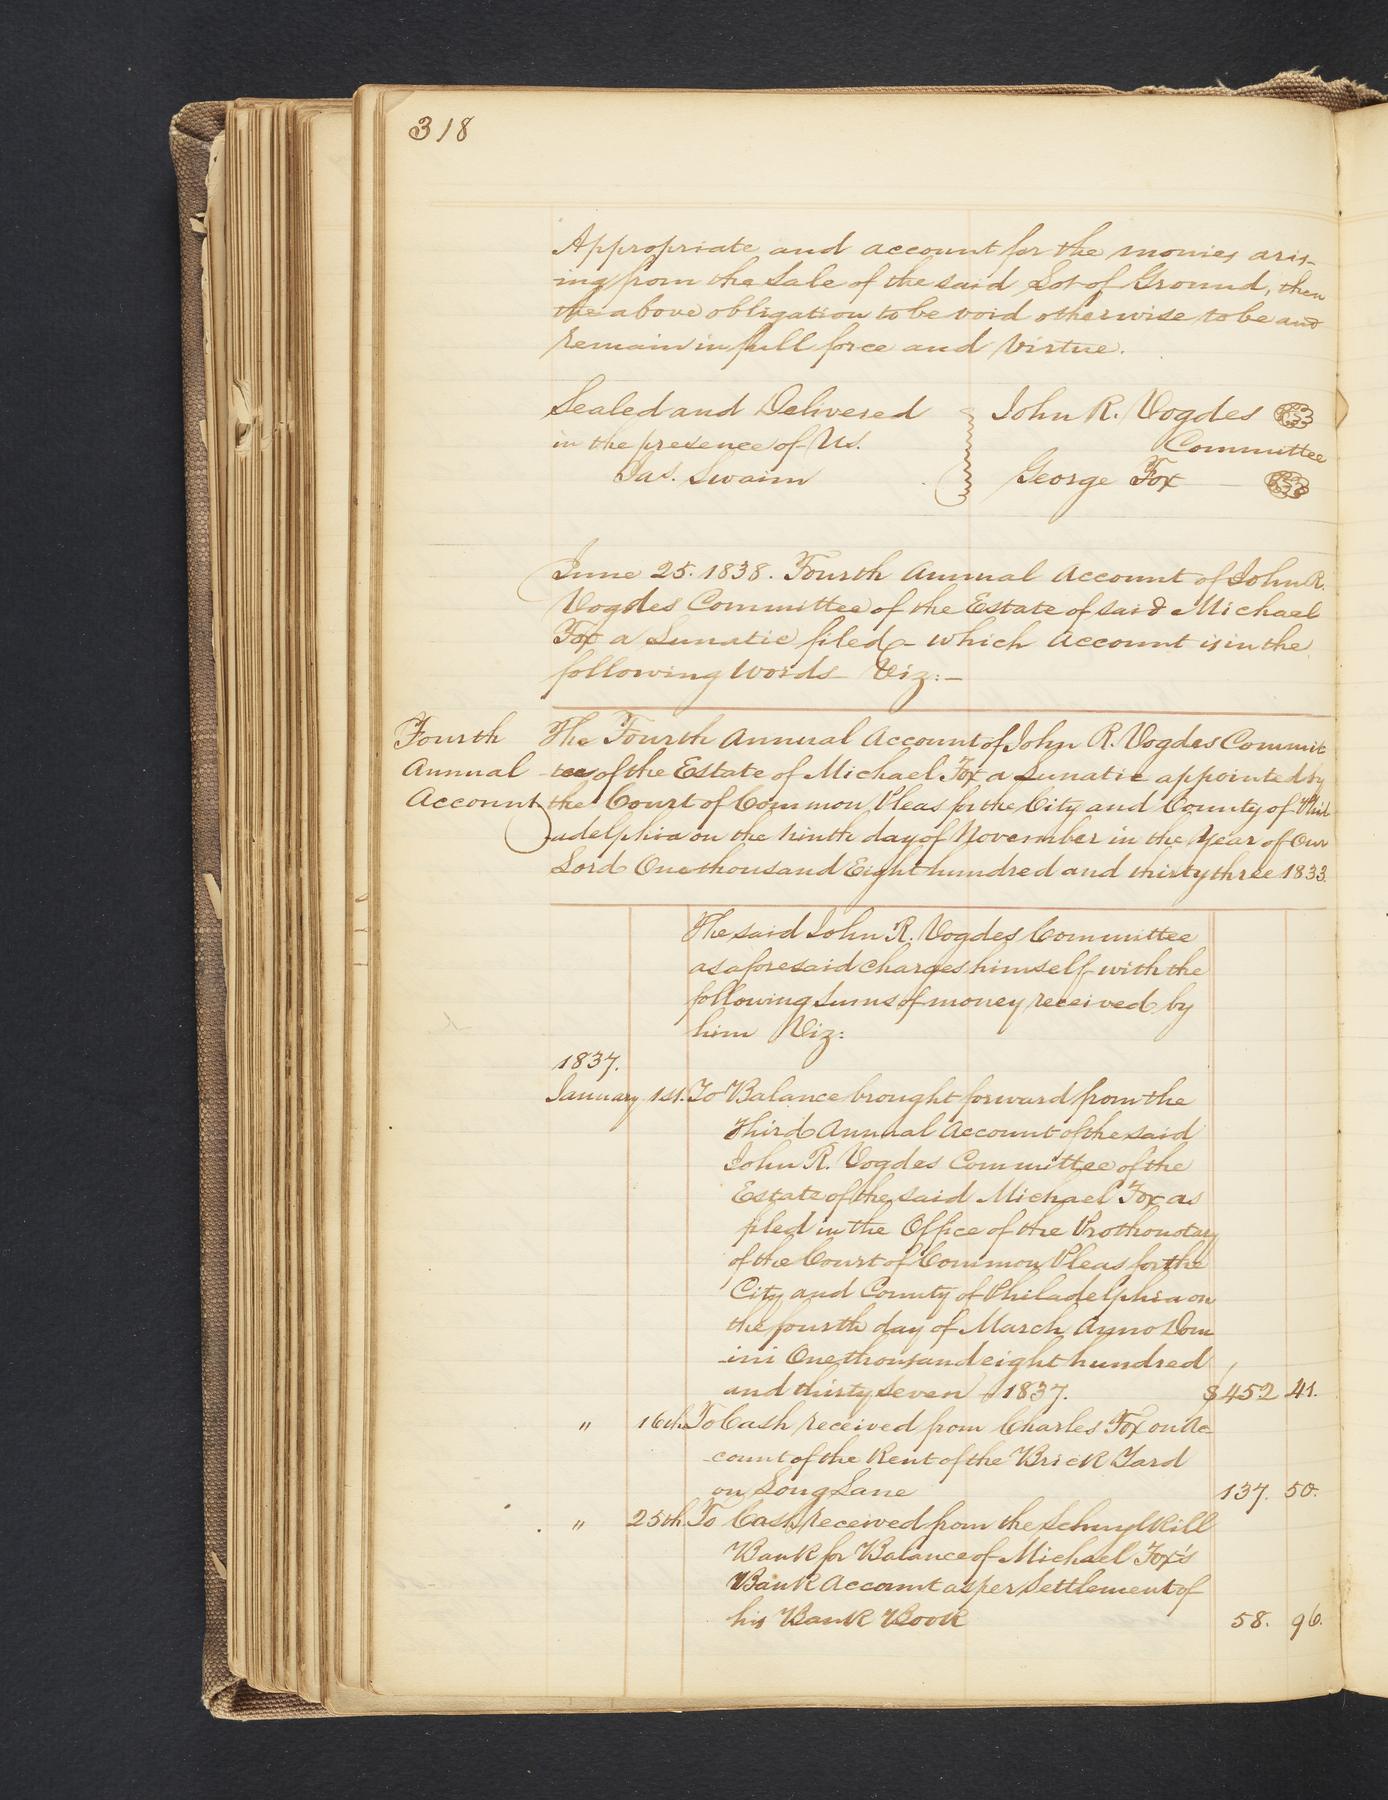 318
Appropriate and account for the monies aris-
ing from the Sale of the said Lot of Ground, then
the above obligation to be void otherwise to be and
remain in full force and Virtue.
Sealed and Delivered
in the presence of Us.
Jas. Swaim
John R. Vogdes
Committee
George Fox
June 25. 1838. Fourth Annual Account of John R.
Vogdes Committee of the Estate of said Michael
Fox a Lunatic filed - which Account is in the
following Words Viz:-
Fourth
Annual
Account
The Fourth Annual Account of John R. Vogdes Commit
tee of the Estate of Michael Fox a Lunatic appointed by
the Court of Common Pleas for the City and County of Phil-
adelphia on the ninth day of November in the Year of Our
Lord One thousand Eight hundred and thirty three 1833.
The said John R. Vogdes Committee
as aforesaid charges himself with the
following Sums of money received by
him Viz:
1837.
January 1st. To Balance brought forward from the
Third Annual Account of the said
John R. Vogdes Committee of the
Estate of the said Michael Fox as
filed in the Office of the Prothonotary
of the Court of Common Pleas for the
City and County of Philadelphia on
the fourth day of March Anno Dom
ini One thousand eight hundred
and thirty Seven 1837. $452 41.
" 16th. To Cash received from Charles Fox on Ac-
count of the Rent of the Brick Yard
on Long Lane 137. 50.
" 25th. To Cash received from the Schuylkill
Bank for Balance of Michael Fox's
Bank Account as per Settlement of
his Bank Book 58. 96.